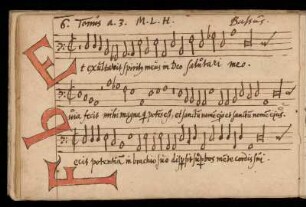 6. Tonus a. 3. M. L. H. Bassus
Et exultavit spiritus meus in Deo salutari meo.
quia fecit mihi magna q potens est, et sanctum nomen ejus et sanctum nomen ejus.
Fecit potentiam in brachio suo dispersit superbos mente cordis sui